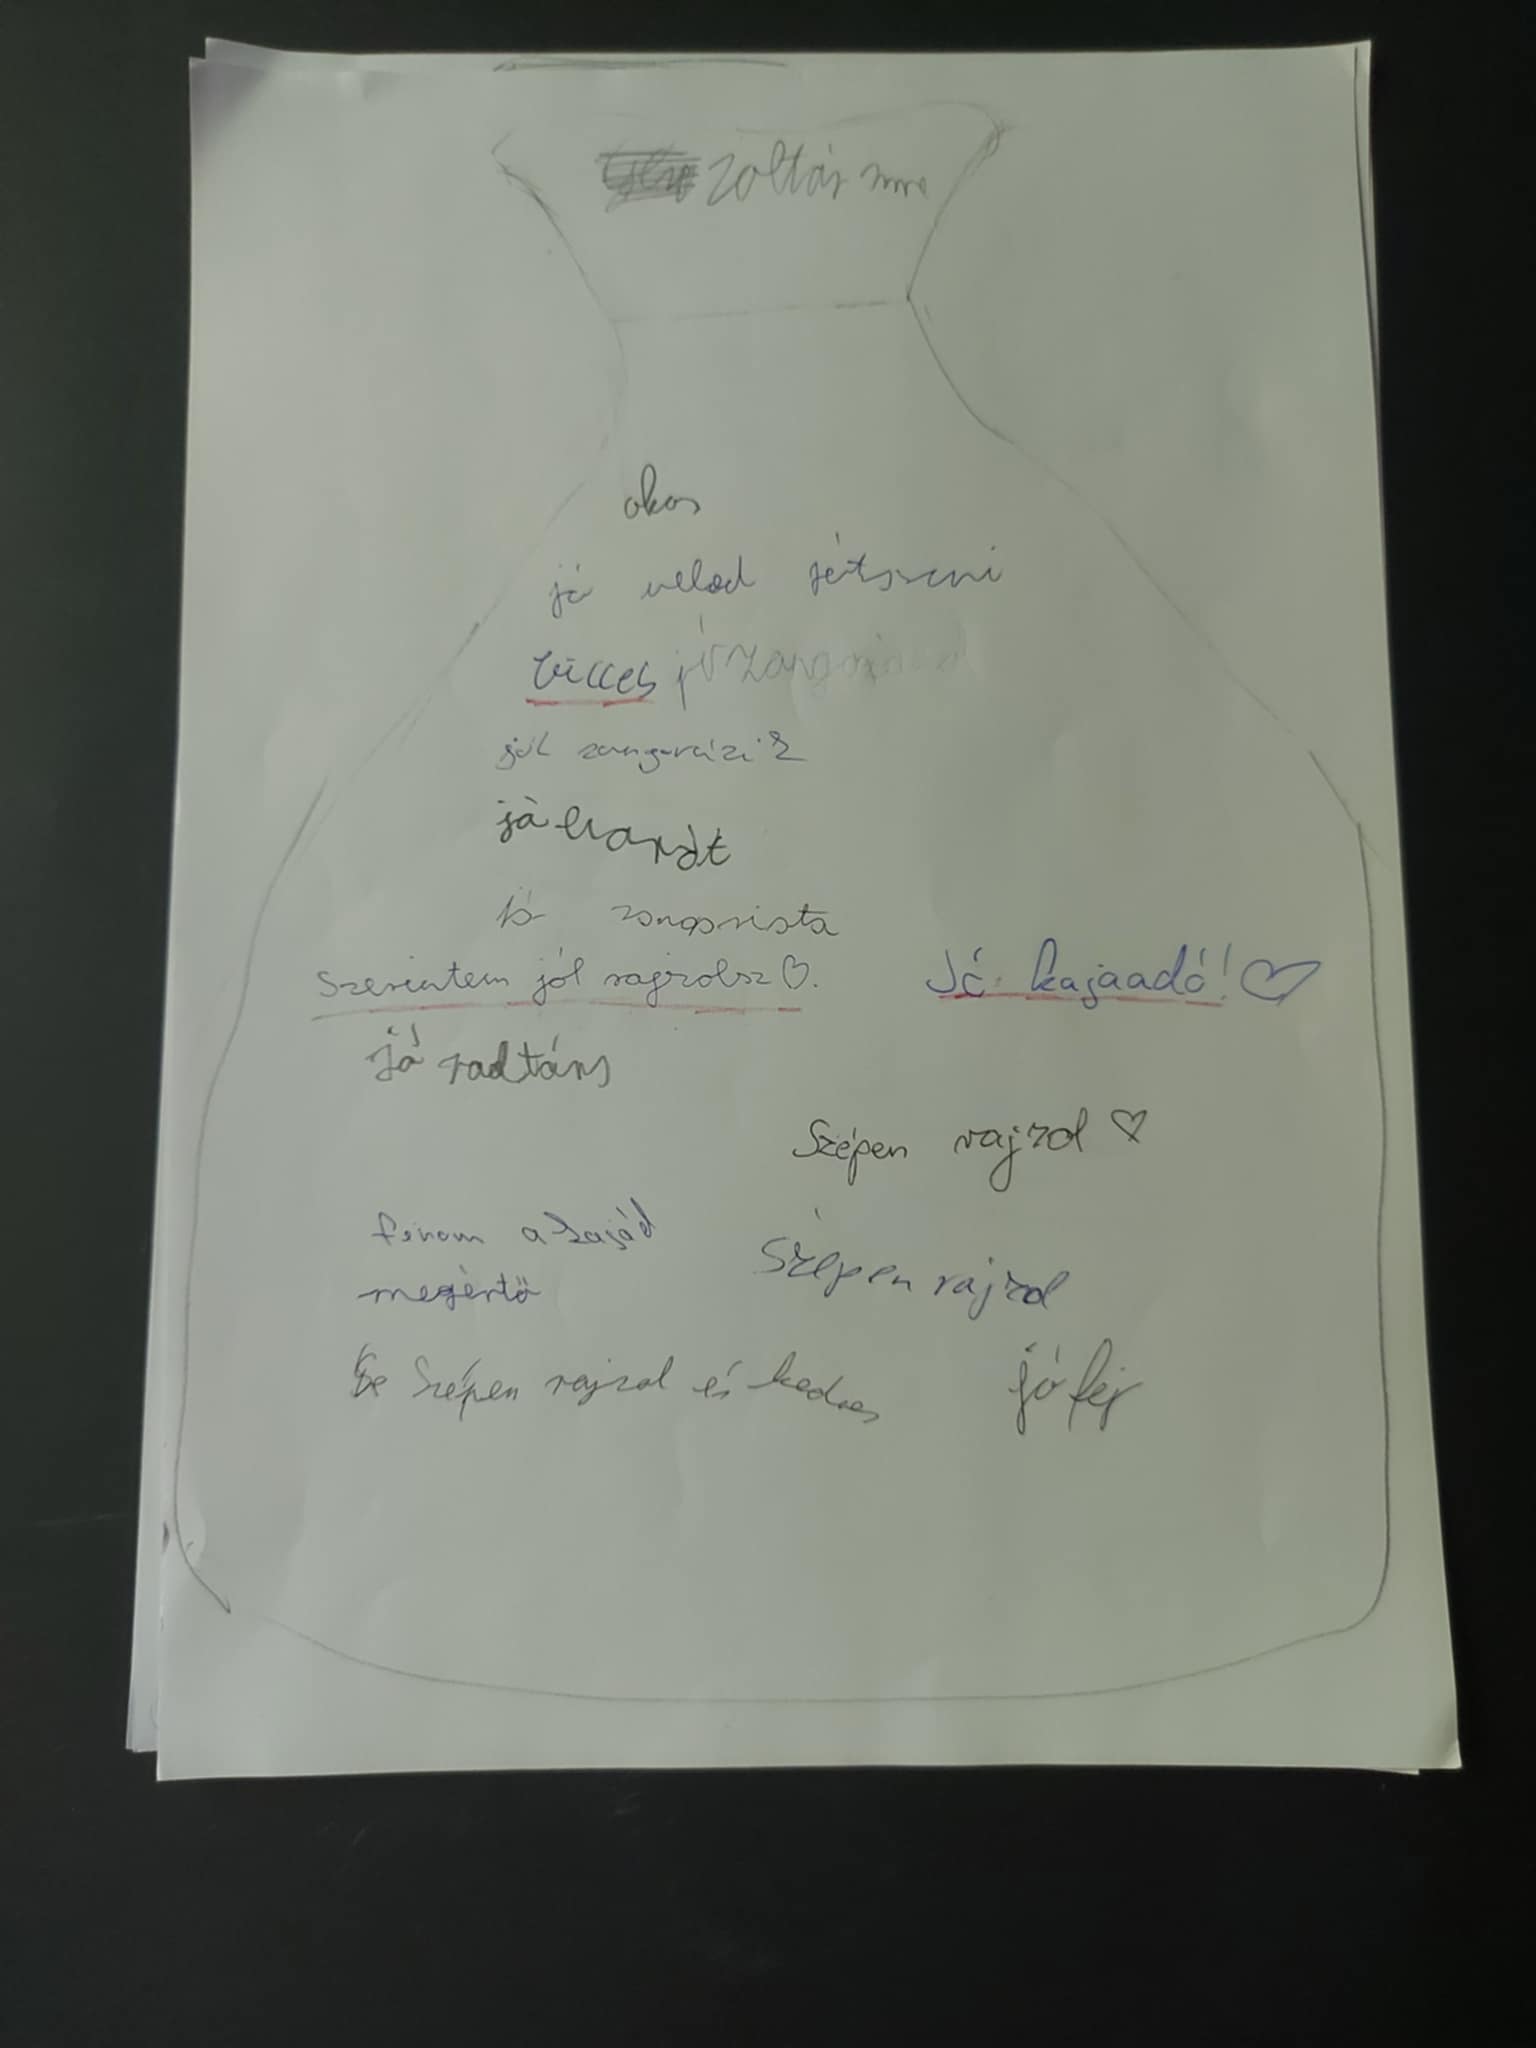 Zoltán Imre
okos
jó veled játszani
vicces jó zongo
jól zongorázik
jó barát
jó zongorista
szerintem jól rajzolsz♡.
Jó kajaadó!♡
Jó radtárs
Szépen rajzol ♡
finom a kajád
Szépen rajzol
megértő
Szépen rajzol és kedves
jó fej